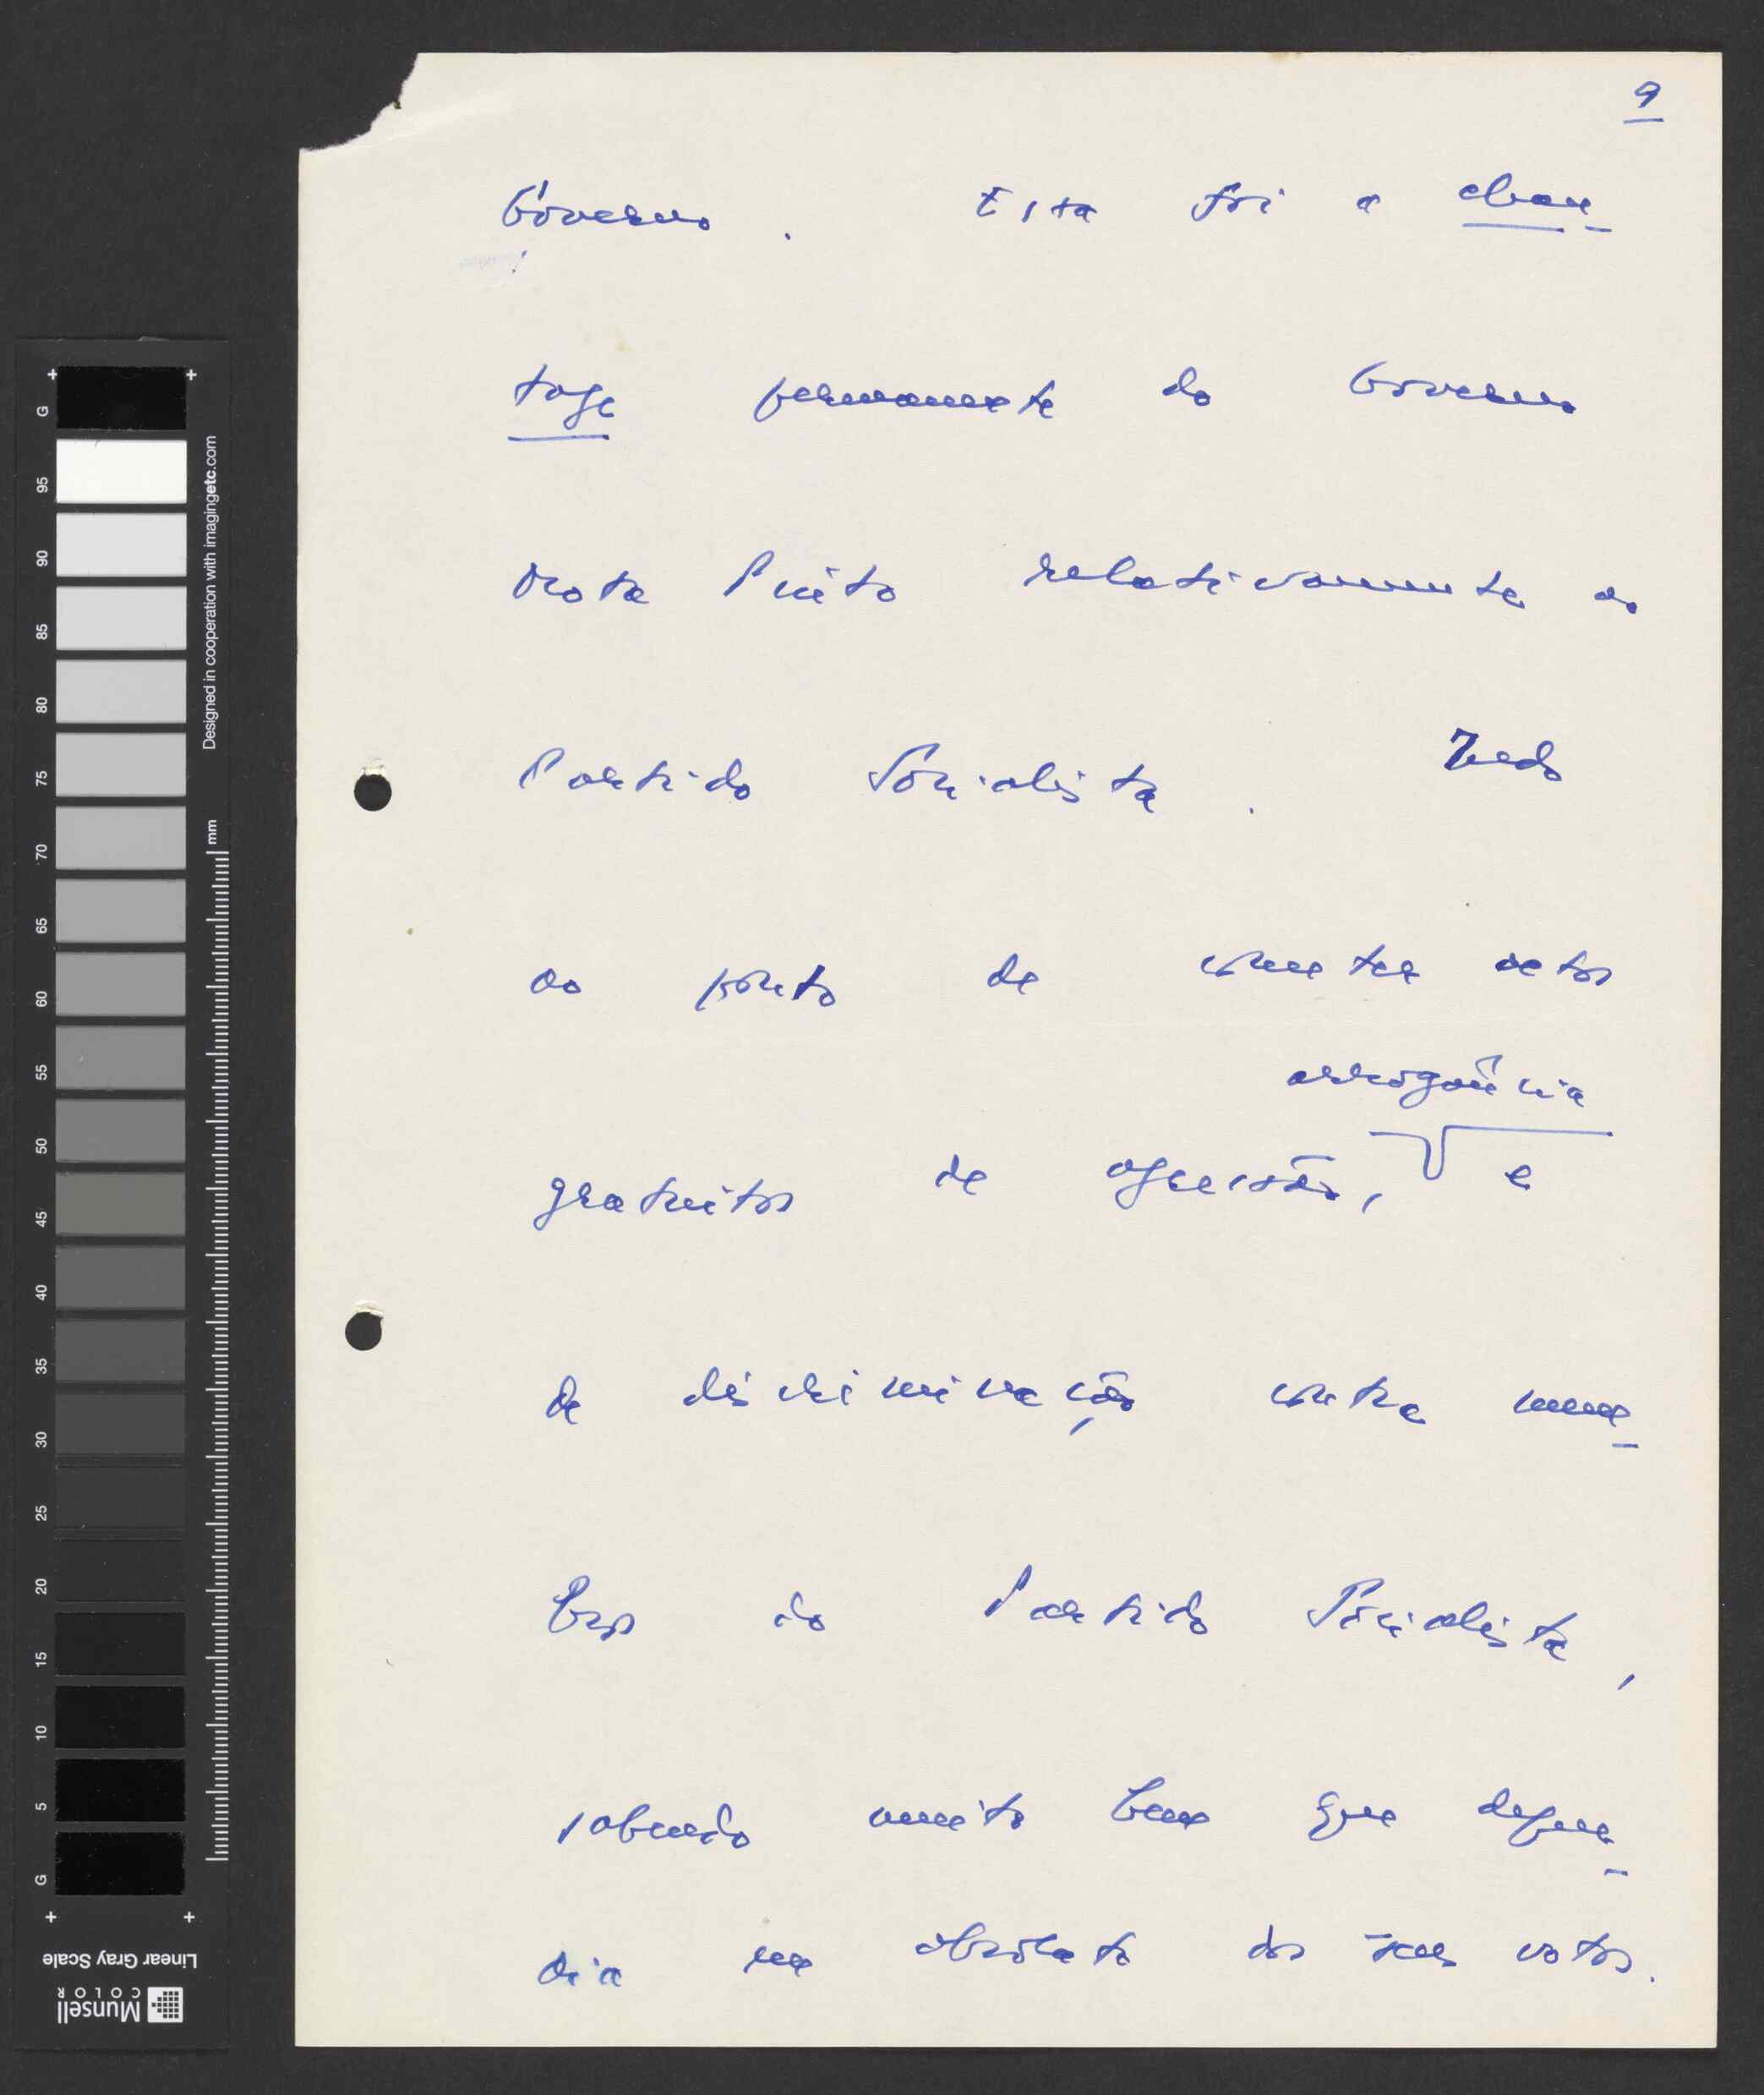 9
Governo. Esta foi a chan-
tage permanente do Governo
Mota Pinto relativamente ao
Partido Socialista. Indo
ao ponto de cometer actos
arrogância
gratuitos de agressão, e
de discriminação contra mem-
bros do Partido Socialista,
sabendo muito bem que depen-
dia em absoluto dos seus votos.
G
95
90
85
80
75
70
65
60
55
50
45
40
35
30
25
20
15
10
5
G
Designed in cooperation with imagingetc.com
mm
Linear Gray Scale
Munsell
COLOR